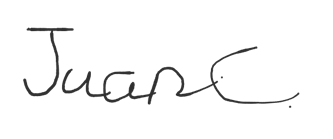 Juan C.